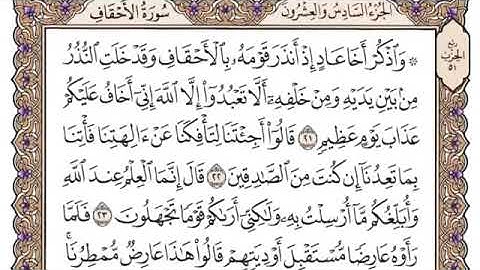 الجزء السادس والعشرون
سورة الأحقاف
۞ وَٱذۡكُرۡ أَخَا عَادٍ إِذۡ أَنذَرَ قَوۡمَهُۥ بِٱلۡأَحۡقَافِ وَقَدۡ خَلَتِ ٱلنُّذُرُ
مِنۢ بَيۡنِ يَدَيۡهِ وَمِنۡ خَلۡفِهِۦٓ أَلَّا تَعۡبُدُوٓاْ إِلَّا ٱللَّهَ إِنِّيٓ أَخَافُ عَلَيۡكُمۡ
عَذَابَ يَوۡمٍ عَظِيمٖ ٢١ قَالُوٓاْ أَجِئۡتَنَا لِتَأۡفِكَنَا عَنۡ ءَالِهَتِنَا فَأۡتِنَا
بِمَا تَعِدُنَآ إِن كُنتَ مِنَ ٱلصَّٰدِقِينَ ٢٢ قَالَ إِنَّمَا ٱلۡعِلۡمُ عِندَ ٱللَّهِ
وَأُبَلِّغُكُم مَّآ أُرۡسِلۡتُ بِهِۦ وَلَٰكِنِّيٓ أَرَىٰكُمۡ قَوۡمٗا تَجۡهَلُونَ ٢٣ فَلَمَّا
رَأَوۡهُ عَارِضٗا مُّسۡتَقۡبِلَ أَوۡدِيَتِهِمۡ قَالُواْ هَٰذَا عَارِضٞ مُّمۡطِرُنَاۚ
ربع
الحزب
٥١